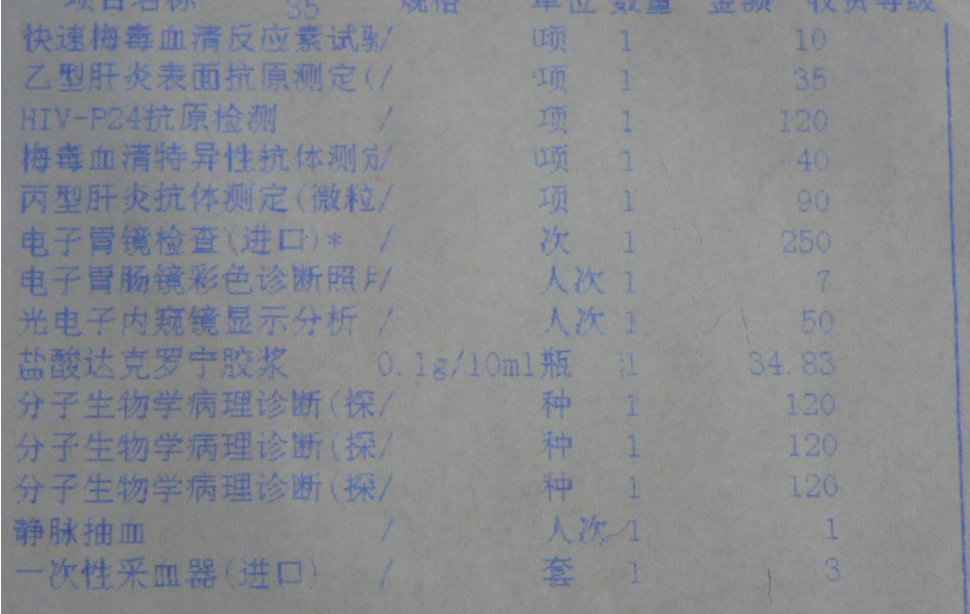 项目名称 35 规格 单位 数量 金额 收费等级
快速梅毒血清反应素试验/ 项 1 10
乙型肝炎表面抗原测定(/ 项 1 35
HIV-P24抗原检测 / 项 1 120
梅毒血清特异性抗体测定/ 项 1 40
丙型肝炎抗体测定(微粒/ 项 1 90
电子胃镜检查(进口)* / 次 1 250
电子胃肠镜彩色诊断照片/ 人次 1 7
光电子内窥镜显示分析 / 人次 1 50
盐酸达克罗宁胶浆 0.1g/10ml瓶 1 34.83
分子生物学病理诊断(探/ 种 1 120
分子生物学病理诊断(探/ 种 1 120
分子生物学病理诊断(探/ 种 1 120
静脉抽血 / 人次 1 1
一次性采血器(进口) / 套 1 3